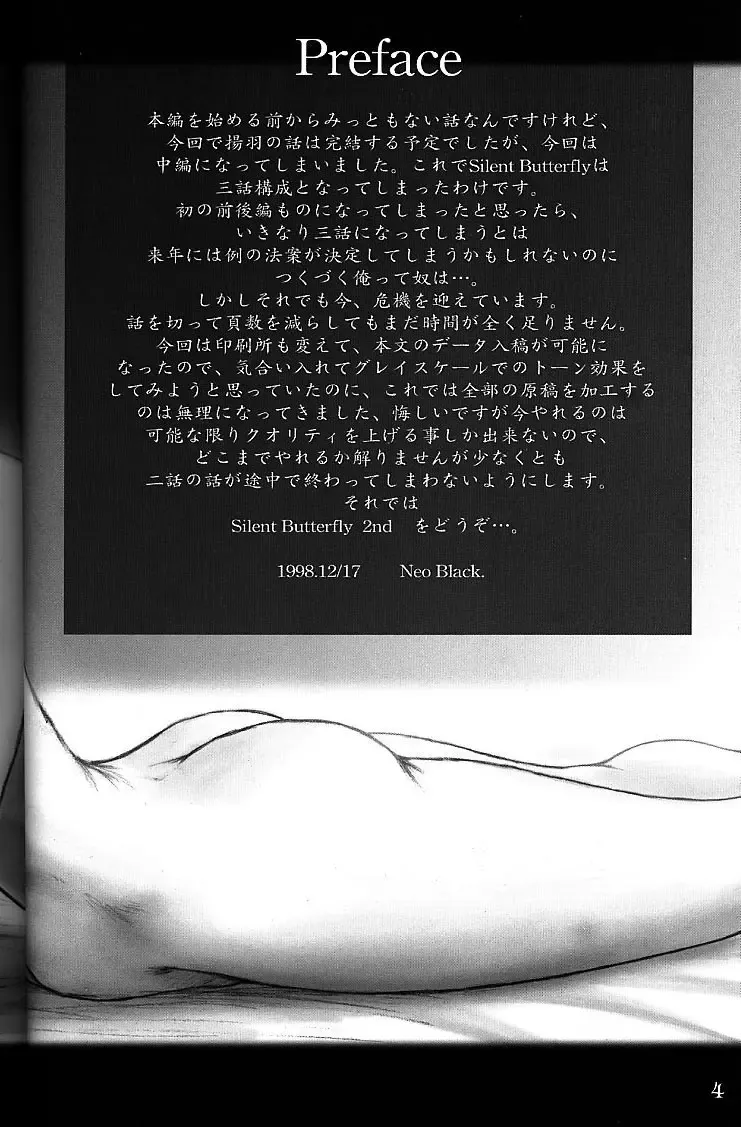 Preface
本編を始める前からみっともない話なんですけれど、
今回で揚羽の話は完結する予定でしたが、今回は
中編になってしまいました。これでSilent Butterflyは
三話構成となってしまったわけです。
初の前後編ものになってしまったと思ったら、
いきなり三話になってしまうとは
来年には例の法案が決定してしまうかもしれないのに
つくづく俺って奴は…。
しかしそれでも今、危機を迎えています。
話を切って頁数を減らしてもまだ時間が全く足りません。
今回は印刷所も変えて、本文のデータ入稿が可能に
なったので、気合い入れてグレイスケールでのトーン効果を
してみようと思っていたのに、これでは全部の原稿を加工する
のは無理になってきました、悔しいですが今やれるのは
可能な限りクオリティを上げる事しか出来ないので、
どこまでやれるか解りませんが少なくとも
二話の話が途中で終わってしまわないようにします。
それでは
Silent Butterfly 2nd をどうぞ…。
1998.12/17 Neo Black.
4